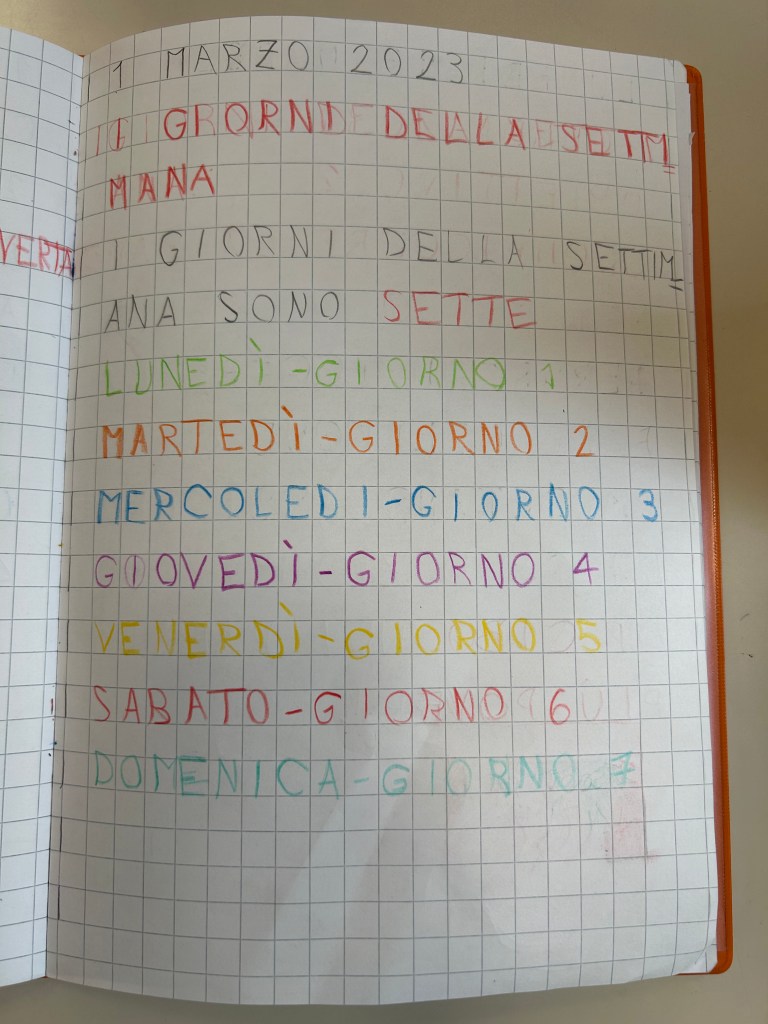 1 MARZO 2023
I GIORNI DELLA SETTIM
MANA
VERTA
I GIORNI DELLA SETTIM
ANA SONO SETTE
LUNEDÌ-GIORNO 1
MARTEDÌ-GIORNO 2
MERCOLEDI-GIORNO 3
GIOVEDÌ-GIORNO 4
VENERDÌ-GIORNO 5
SABATO-GIORNO 6
DOMENICA-GIORNO 7